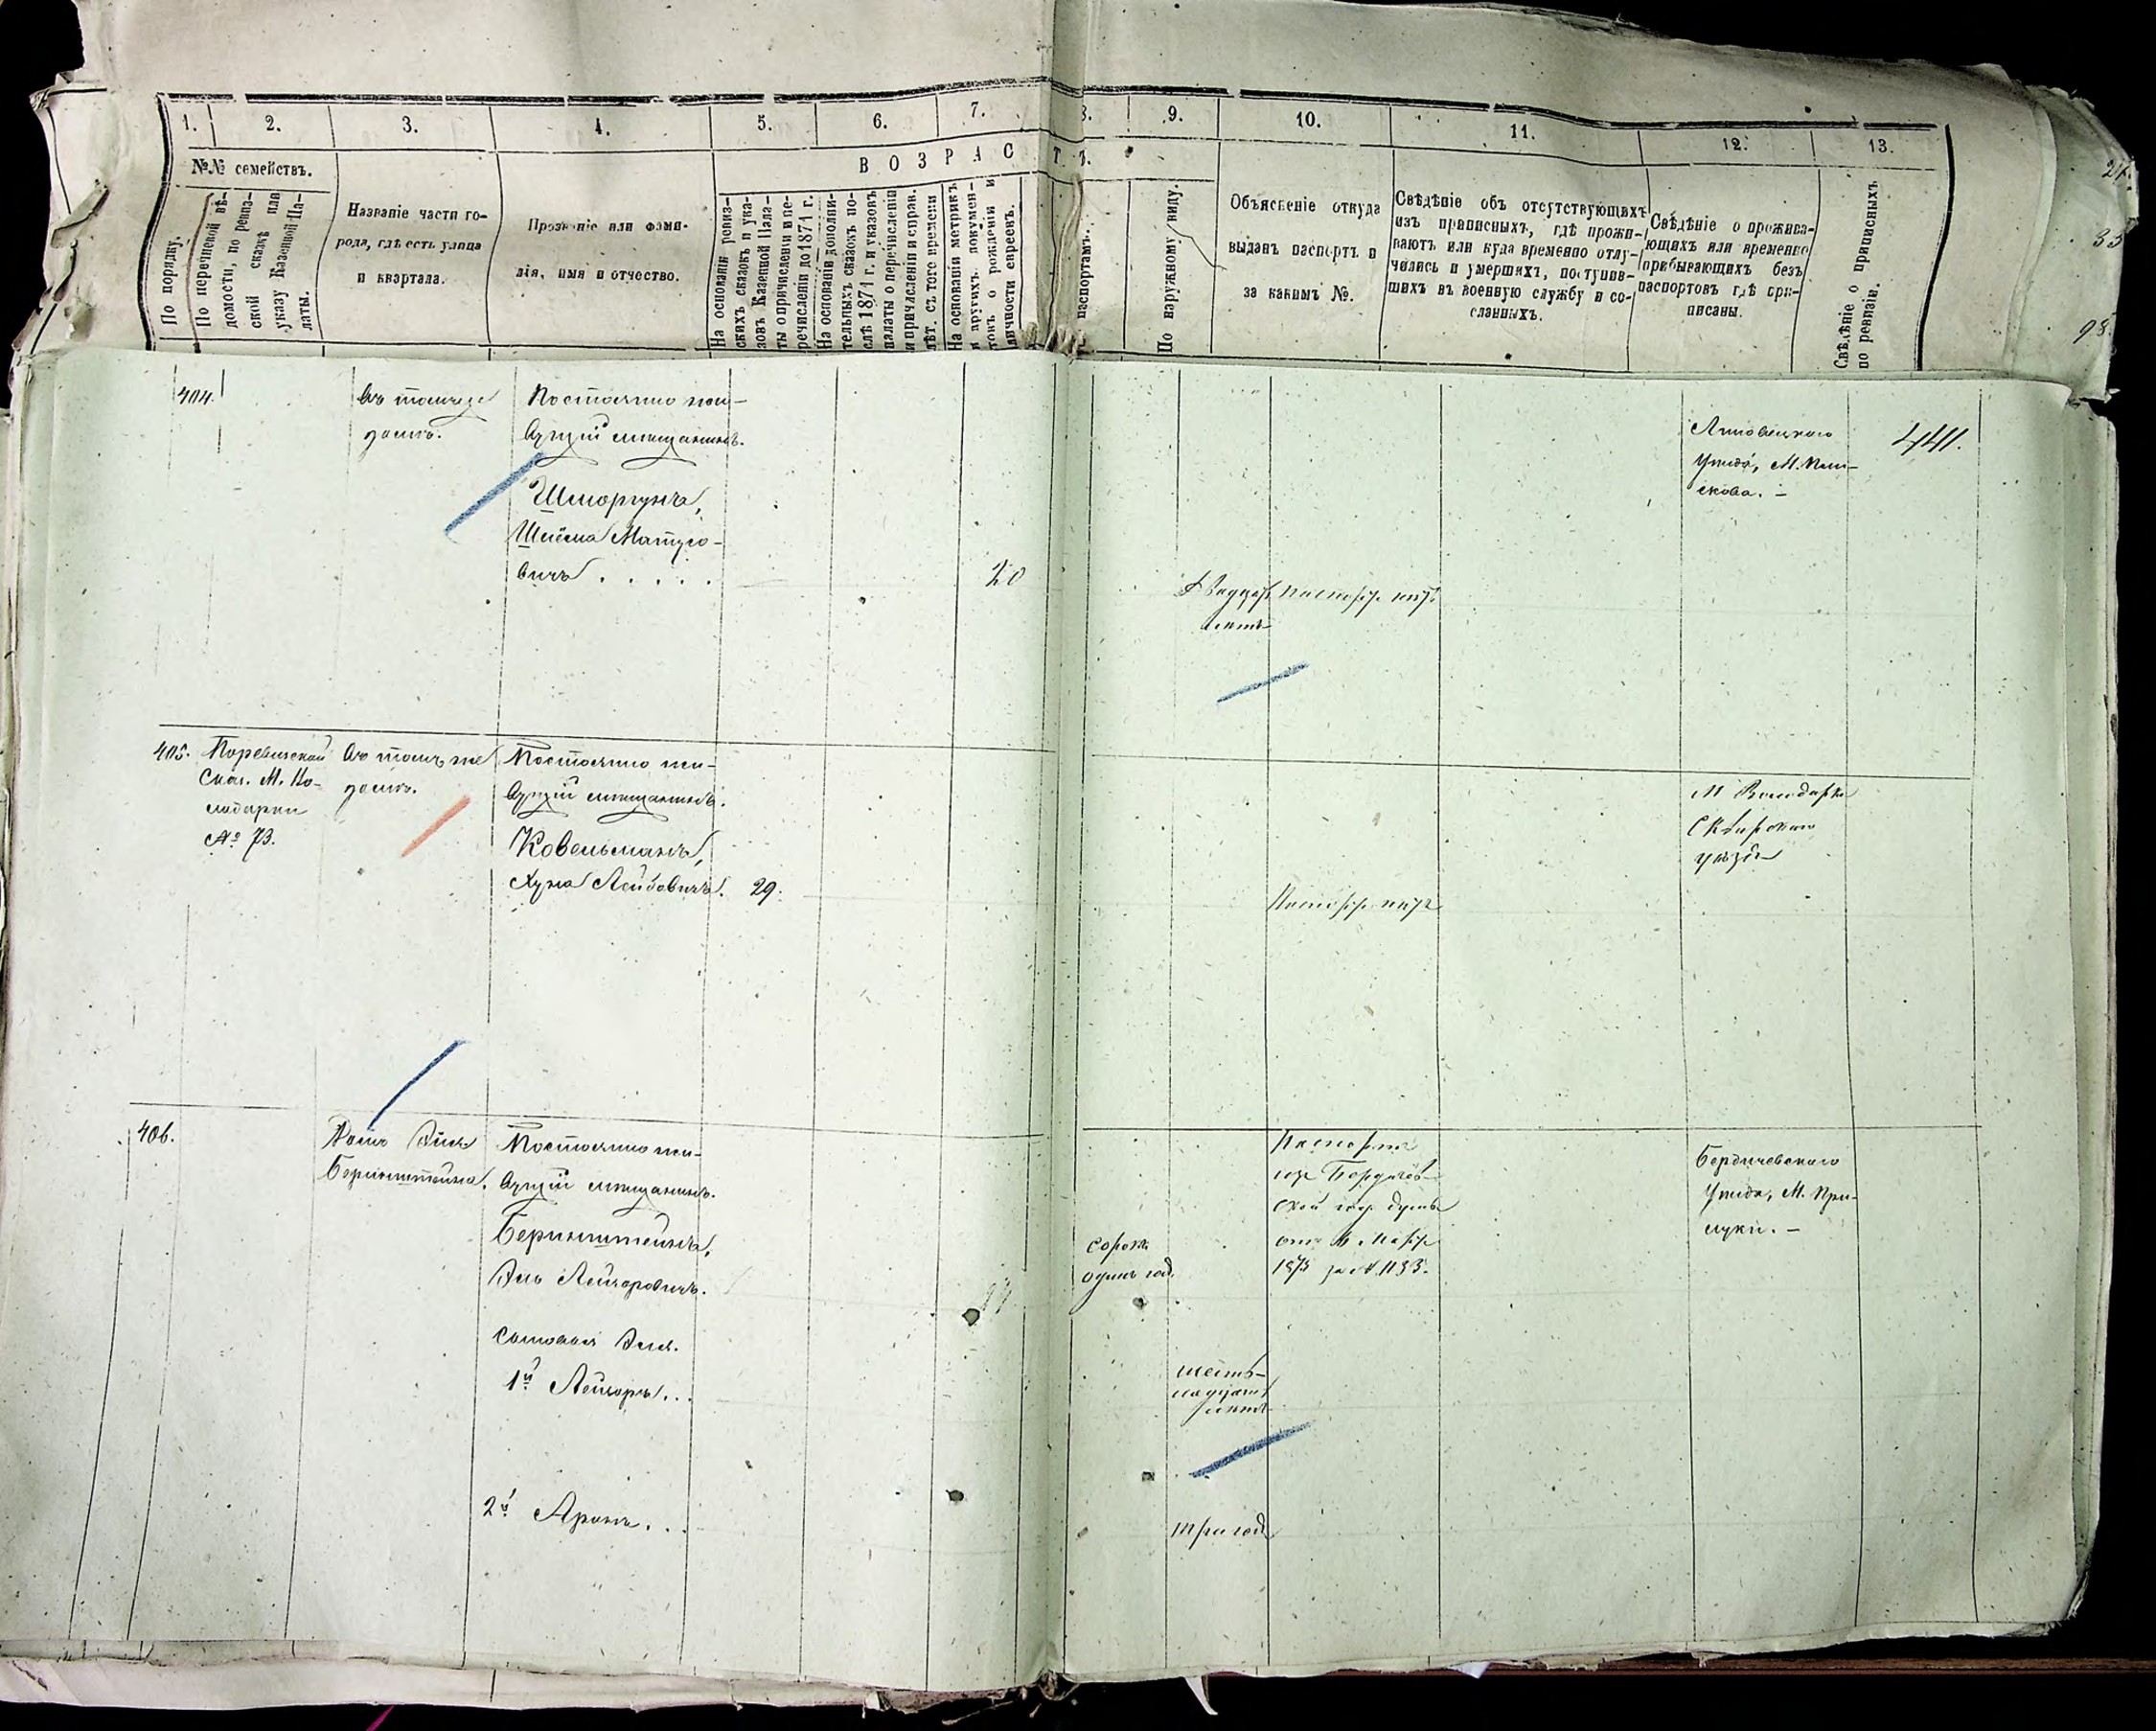 1.
2.
3.
4.
5.
6.
7.
8.
9.
10.
11.
12.
13.
№№ семействъ.
ВОЗРАСТЪ.
По порядку.
По перечневой вѣ-
домости, по ревиз-
ской сказкѣ или
указу Казенной Па-
латы.
Названіе части го-
рода, гдѣ есть улица
и квартала.
Прозваніе или фами-
лія, имя и отчество.
На основаніи ревиз-
скихъ сказокъ и ука-
зовъ Казенной Пала-
ты о причисленіи и пе-
речисленіи до 1871 г.
На основаніи дополни-
тельныхъ сказокъ по-
слѣ 1871 г. и указовъ
палаты о перечисленіи
и причисленіи и справ.
лѣт. съ того времени
На основаніи метрикъ
и другихъ докумен-
товъ о рожденіи и
личности евреевъ.
паспортамъ.
По наружному виду.
Объясненіе откуда
выданъ паспортъ и
за какимъ №.
Свѣдѣніе объ отсутствующихъ
изъ приписныхъ, гдѣ прожи-
ваютъ или куда временно отлу-
чились и умершихъ, поступив-
шихъ въ военную службу и со-
сланныхъ.
Свѣдѣніе о прожива-
ющихъ или временно
прибывающихъ безъ
паспортовъ гдѣ при-
писаны.
Свѣдѣніе о приписныхъ
по ревизіи.
404.
Въ томъ же
домѣ.
Постоянно жи-
вущій мѣщанинъ.
Шморгунъ,
Шлёма Матусо-
вичъ . . . . .
20
Двадцать
лѣтъ
Паспорт. нѣтъ
Липовецкаго
Уѣзда, М.
441.
405.
По ревизской
Сказ. М. Во-
лодарки
№ 73.
Въ томъ же
домѣ.
Постоянно жи-
вущій мѣщанинъ.
Ковельманъ,
Хуна Лейбовичъ.
29.
Паспорт. нѣтъ
М Володарки
Сквирскаго
уѣзда
406.
Домъ Эля
Беринштейна.
Постоянно жи-
вущій мѣщанинъ.
Беринштейнъ,
Эль Лейзоровичъ.
сорокъ
одинъ год.
Паспортъ
изъ Бердичев-
ской гор. думы
1873 за № 1133.
Бердичевскаго
Уѣзда, М. При-
луки. –
Сыновья Эля.
1й Лейзоръ . .
шест-
надцать
лѣтъ
2й Аронъ. . .
три года